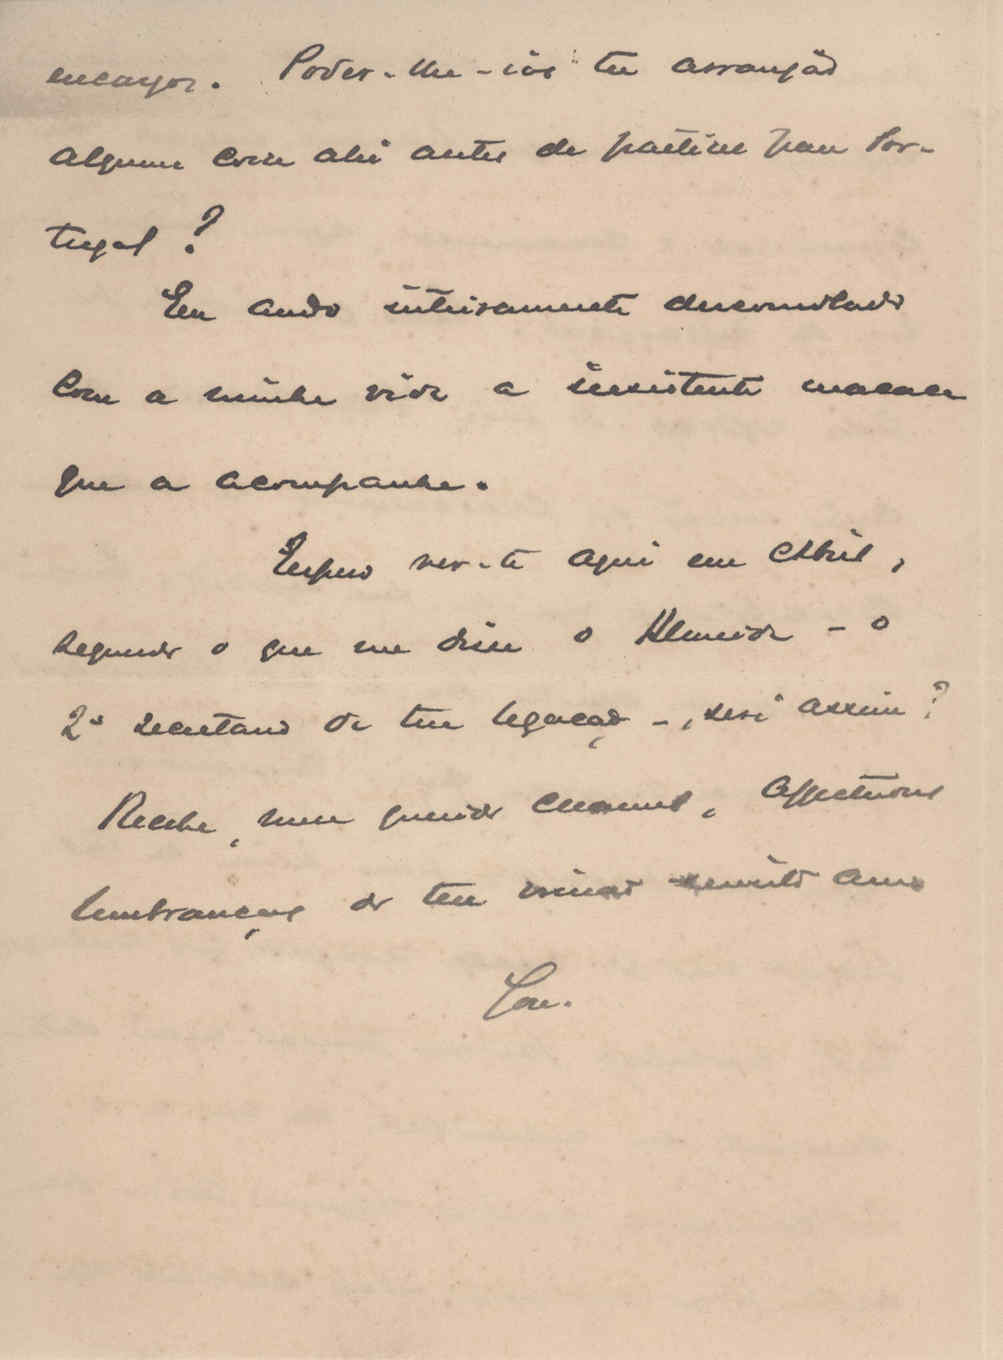 encargos. Poder-me-ias tu arranjar
alguma coisa ahi antes de partires para Por-
tugal?
Eu ando inteiramente desconsolado
com a minha vida e a insistente macaca
que a acompanha.
Espero ver-te aqui em Abril,
segundo o que me disse o Almeida - o
2º secretario da tua legação -, será assim?
Recebe, meu querido Manuel, affectuosas
lembranças do teu muito amo